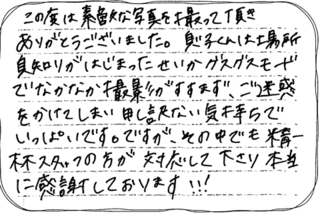 この度は素敵な写真を撮って頂き
ありがとうございました。息子くんは場所
見知りがはじまったせいかグズグズモード
でなかなか撮影がすすまず、ご迷惑
をかけてしまい申し訳ない気持ちで
いっぱいです。ですが、その中でも精一
杯スタッフの方が対応して下さり本当
に感謝しております!!!